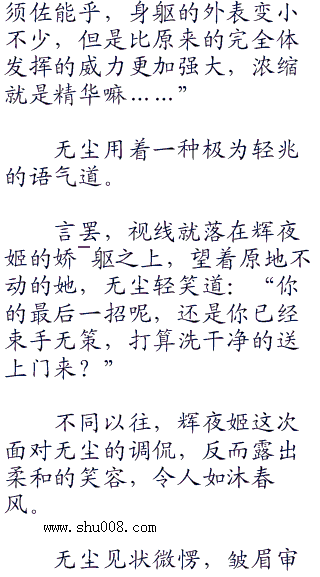 须佐能乎，身躯的外表变小
不少，但是比原来的完全体
发挥的威力更加强大，浓缩
就是精华嘛……”
无尘用着一种极为轻兆
的语气道。
言罢，视线就落在辉夜
姬的娇¯躯之上，望着原地不
动的她，无尘轻笑道：“你
的最后一招呢，还是你已经
束手无策，打算洗干净的送
上门来？”
不同以往，辉夜姬这次
面对无尘的调侃，反而露出
柔和的笑容，令人如沐春
风。
www.shu008.com
无尘见状微愣，皱眉审